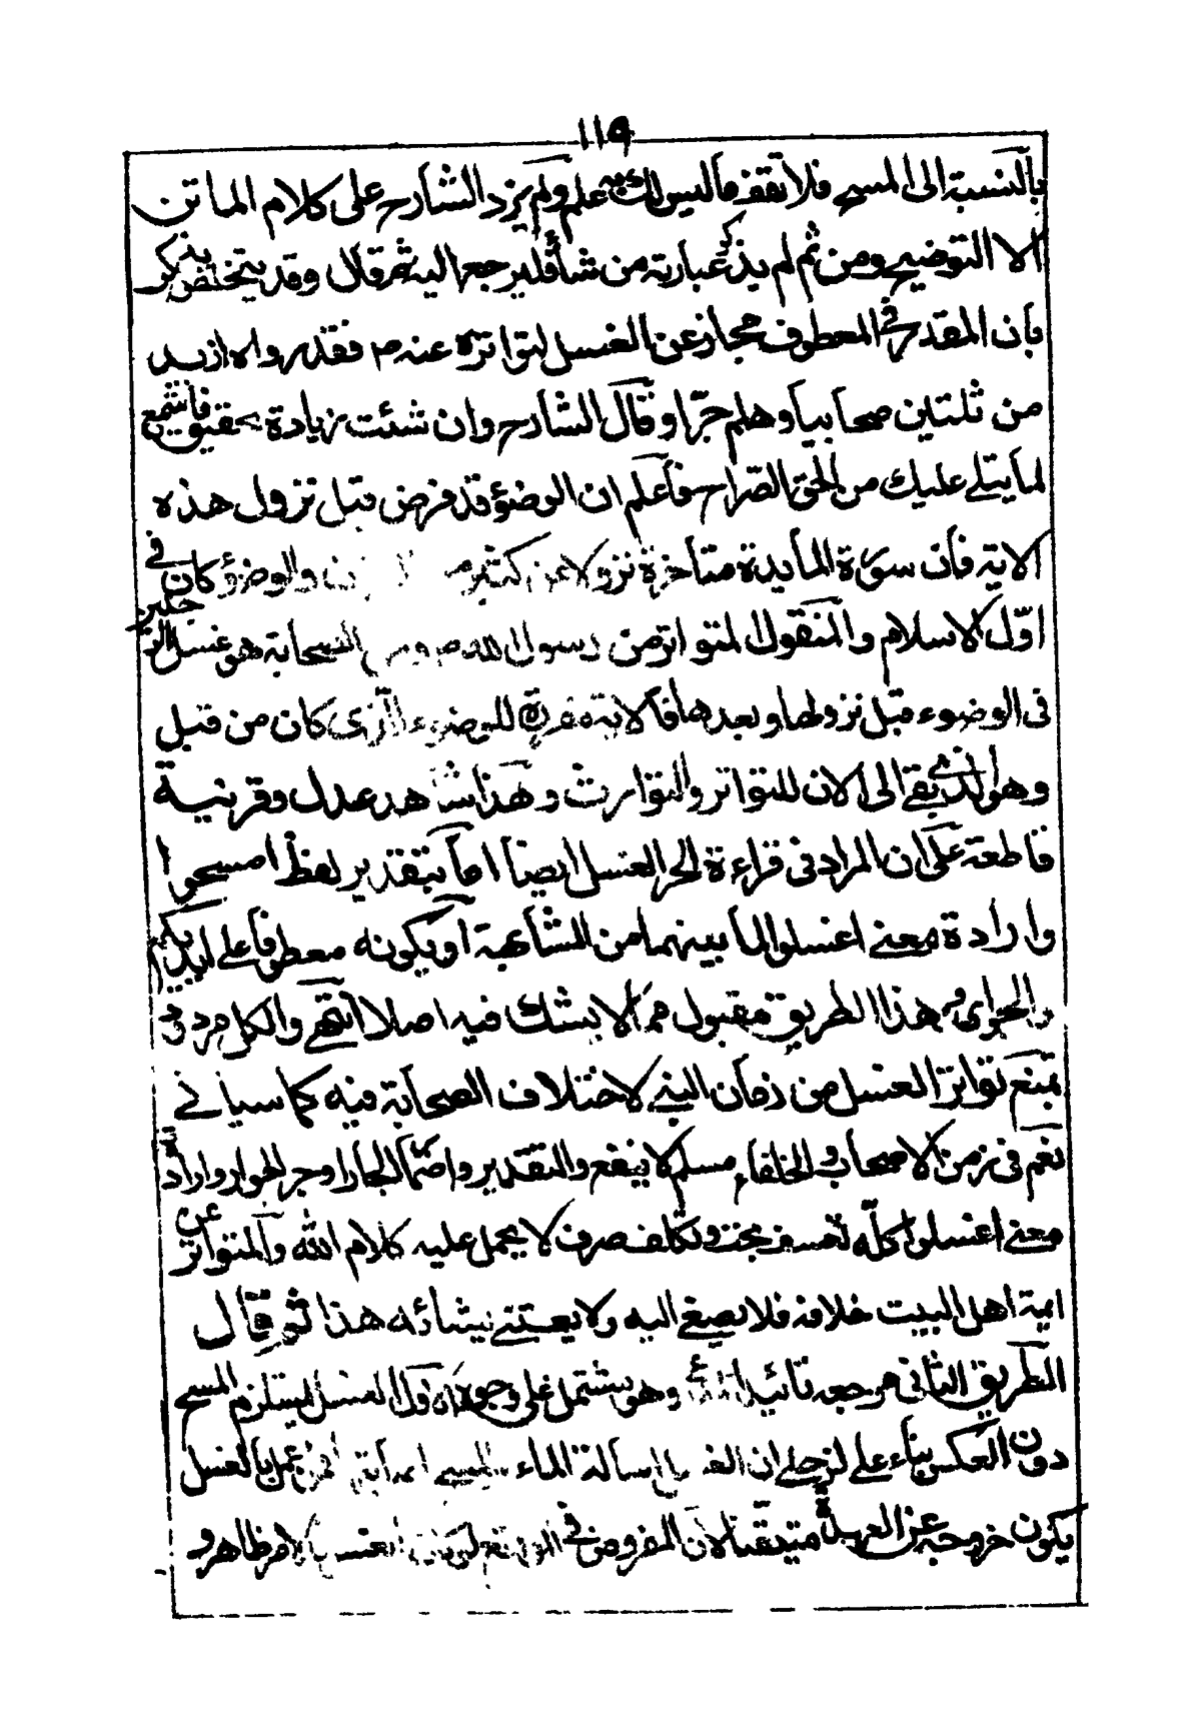 ١١٩
بالنسبة الى المسح فلا تقف ما ليس لك به علم ولم يزد الشارح على كلام الماتن
الا التوضيح ومن ثم لم يذكر عبارته من شأ فليرجع اليه ثم قال وقد يتخلص
بان المقدر في المعطوف مجاز عن الغسل لتواتره عنه ص فقد رواه ازيد
من ثلثين صحابيا وهلم جرّا وقال الشارح وان شئت زيادة تحقيق فاستمع
لما يتلے عليك من الحق الصراح فاعلم ان الوضؤ قد فرض قبل نزول هذه
الاية فان سورة المايدة متأخرة نزولا عن كثير والوضؤ كان في
اوّل الاسلام والمنقول المتواتر من رسول الله ص الصحابة هو غسل الرجلين
فى الوضوء قبل نزولها وبعدها فالاية مقررة للوضوء الّذى كان من قبل
وهو الذى بقے الى الان للتواتر والتوارث وهذا شاهد عدل وقرنية
قاطعة على ان المراد فى قراءة الجر الغسل ايضا اما بتقدير لفظ امسحوا
وارادة معنے اغسلوا لما بينهما من المشابهة او بكونه معطوفا على ايديكم
والجر للجوار وهذا الطريق مقبول ممّا لا يشك فيه اصلا انتهے والكل مردود
بمنع تواتر الغسل من زمان النبے لاختلاف الصحابة فيه كما سيأتے
نعم فى زمن الاصحاب والخلفاء مسلم لا ينفع والتقدير واضمار الجار او جر الجوار وارادة
معنے اغسلوا كلّه تعسف بحت وتكلف صرف لا يحمل عليه كلام الله والمتواتر عن
ايمة اهل البيت خلافه فلا يصغے اليه ولا يعتنے بشأنه هذا ثم قال
الطريق الثانى مرجعه تائيد وهو يشتمل على وجوه الاول الغسل يستلزم المسح
دون العكس بناء على ان اسالة الماء المسح بالغسل
يكون خروجه عن العهدة متيقنا لان المفروض فى ظاهر و